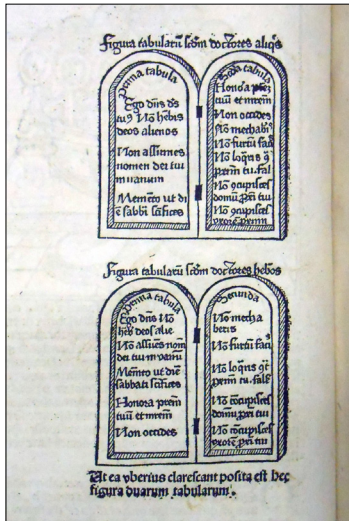 Figura tabularū scđm doctores aliq̄s
Prima tabula
Ego dñs đs
tuꝰ Nō hēbis
deos alienos
Non assumes
nomen dei tui
in uanum
Memēto ut di
ē sabbī scīfices
Scđa tabula
Honora přēz
tuū et mrēm
Non occides
Nō mechabꝭ
Nō furtū faciꝰ
Nō loqr̄is 9t̄
prēm tū. fal
Nō 9cupisces
domū pr̄xi tui
Nō 9cupisces
uxorē prīmi
Figura tabularū scđm doctores hebr̄os
Prima tabula
Ego dñs Nō
hēb deos alie
Nō assūes nom̄
dei tui in vanū
Memēto ut diē
sabbati scīfices
Honora prēm
tuū et mrēm
Non occides
Secunda
Nō mecha
beris
Nō furtū faciꝰ
Nō loqr̄is 9t̄
prīm tū. fals̄
Nō cōcupisces
domū pr̄xi tui
Nō cōcupisces
uxorē pr̄xi tui
Ut ea vberius clarescant posita est hec
figura duarum tabularum.